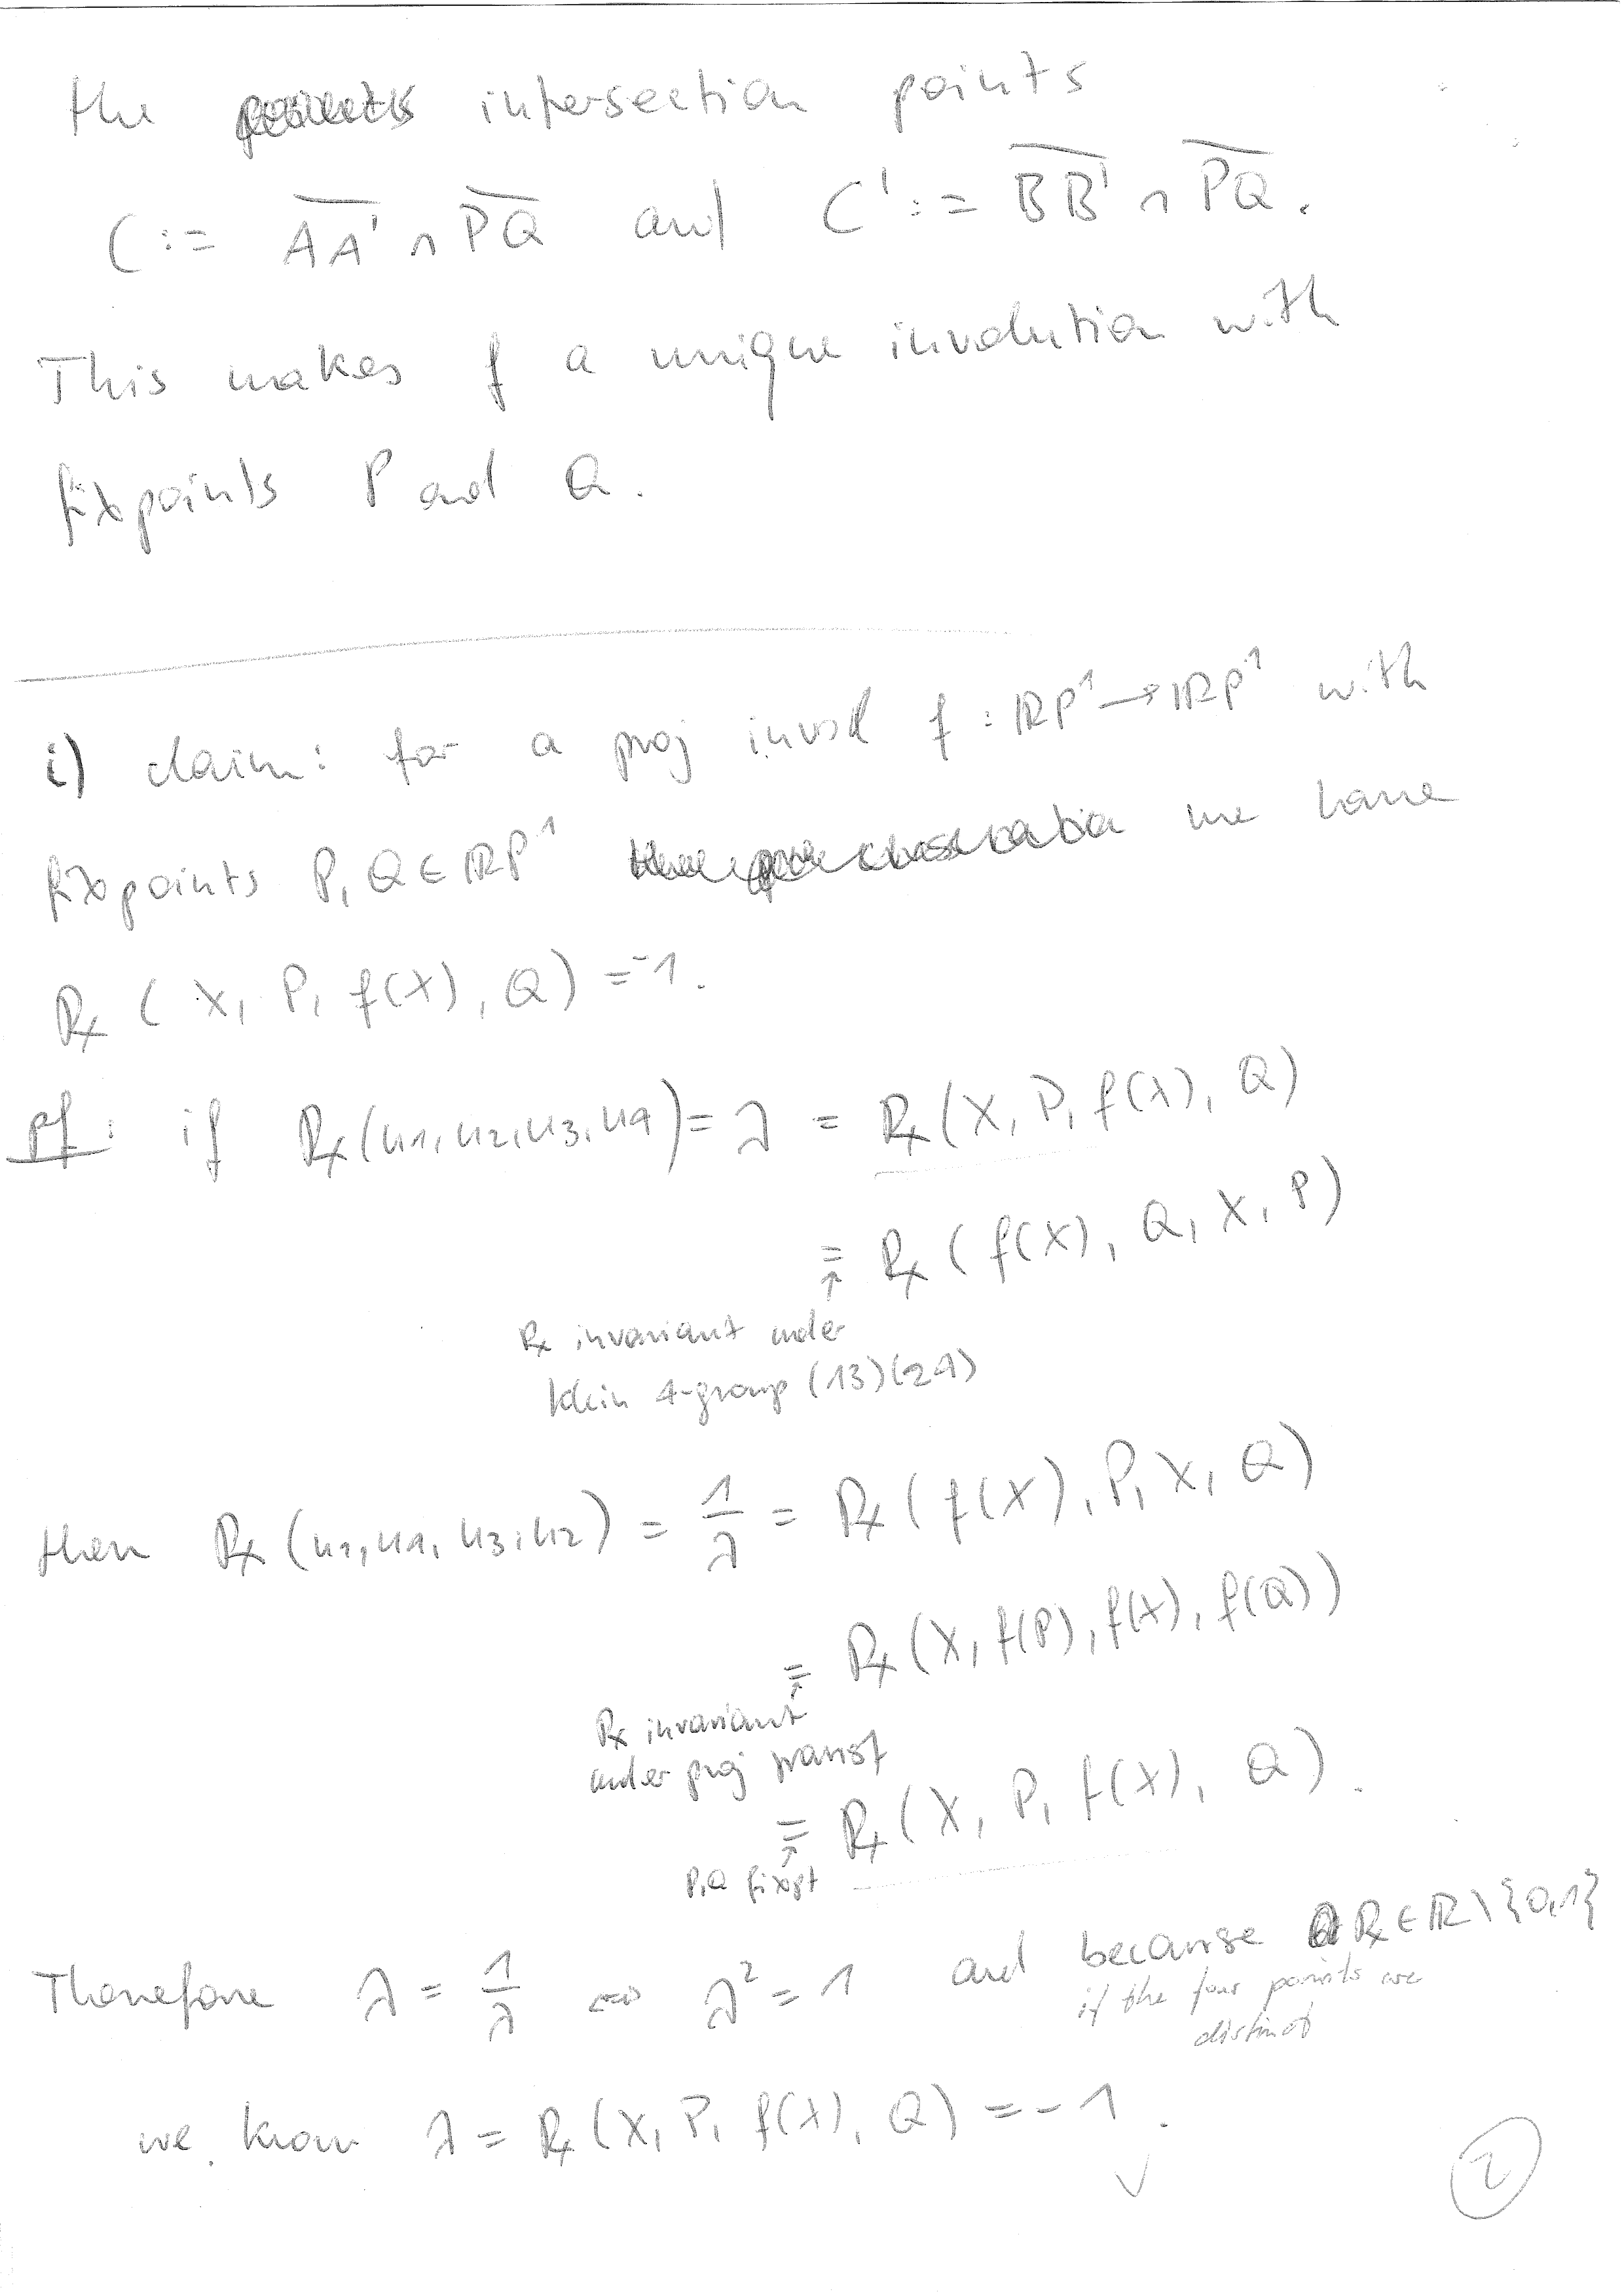 the intersection points
C := AA' ∩ PQ and C' := BB' ∩ PQ.
This makes f a unique involution with
fixpoints P and Q.
i) claim: for a proj invol f : ℝP¹ → ℝP¹ with
fixpoints P, Q ∈ ℝP¹ we have
Rx ( X, P, f(X), Q) = -1.
Pf: if Rx(u1, u2, u3, u4) = λ = Rx(X, P, f(X), Q)
= Rx ( f(X), Q, X, P)
↑
Rx invariant under
Klein 4-group (13)(24)
then Rx (u1, u4, u3, u2) = 1/λ = Rx ( f(X), P, X, Q)
= Rx (X, f(P), f(X), f(Q))
↑
Rx invariant
under proj transf
= Rx (X, P, f(X), Q).
↑
P,Q fixpt
Therefore λ = 1/λ ⟺ λ² = 1 and because Rx ∈ ℝ\{0,1}
if the four points are
distinct
we know λ = Rx (X, P, f(X), Q) = -1.
✓
2